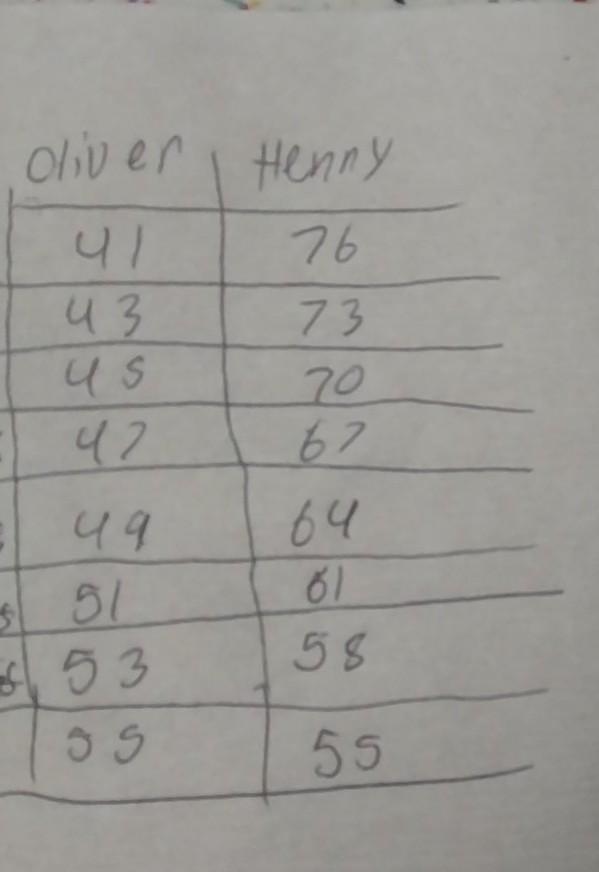 Oliver Henny
41 76
43 73
45 70
47 67
49 64
51 61
53 58
55 55